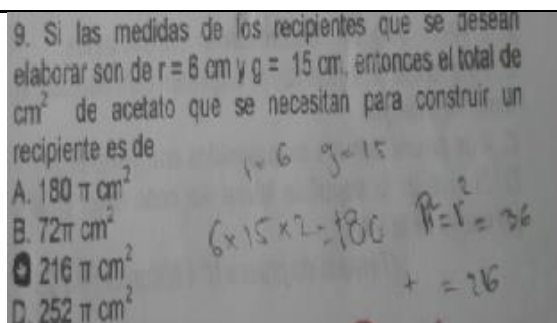 9. Si las medidas de los recipientes que se desean
elaborar son de r = 6 cm y g = 15 cm, entonces el total de
cm² de acetato que se necesitan para construir un
recipiente es de
r=6 g=15
A. 180 π cm²
B. 72π cm²
6×15×2=180 r² = 36
216 π cm²
+ = 216
D. 252 π cm²